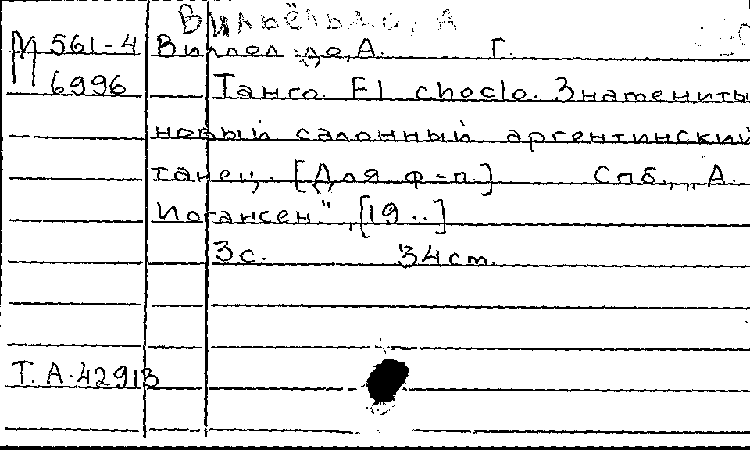 Вильёльдо, А
М 561-4 Виллел де, А. Г.
6996 Танго. El choclo. Знамениты
новый салонный аргентинский
танец. [Для ф-п.] Спб., „А.
Иогансен", [19..]
3 с. 34 см.
Т.А.42913